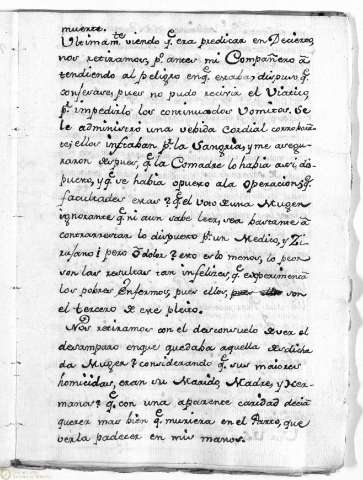 muerte.
Ultimamte viendo q.e era predicar en Decierto,
nos retiramos, pr. antes mi Compañero a
tendiendo al peligro enq. estaba, dispuso q.
confesase, pues no pudo recivir el Viatico
pr. impedirlo los continuados Vomitos. Se
le administro una vebida Cordial corrobora
te; ellos instaban pr. la Sangria, y me asegu
raron despues, q. la Comadre lo habia assi dis
puesto, y q. se habia opuesto ala Operacion ¿q.
facultades estas? ¿q. el voto de una Muger
ignorante q. ni aun sabe leer, sea bastante á
contrarrestar lo dispuesto pr. un Medico, y Zi
rujano? pero ô dolor? esto es lo menos, lo peor
son las resultas tan infelizes, q. experimentã
los pobres Enfermos, pues ellos, son
el tercero de este pleito.
Nos retiramos con el desconsuelo de ver el
desamparo enque quedaba aquella desdicha
da Muger? considerando q. sus maiores
homicidas, eran su Marido, Madre, y Her
manos? q. con una aparente caridad deciã
querer mas bien q. muriera en el Parto, que
verla padecer en mis manos.